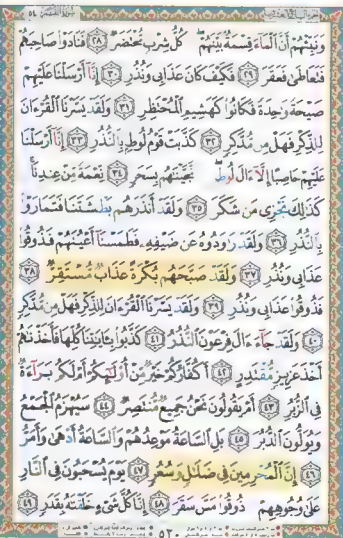 وَنَبِّئْهُمْ أَنَّ الْمَاءَ قِسْمَةٌ بَيْنَهُمْ كُلُّ شِرْبٍ مُّحْتَضَرٌ ٢٨ فَنَادَوْا صَاحِبَهُمْ
فَتَعَاطَىٰ فَعَقَرَ ٢٩ فَكَيْفَ كَانَ عَذَابِي وَنُذُرِ ٣٠ إِنَّا أَرْسَلْنَا عَلَيْهِمْ
صَيْحَةً وَاحِدَةً فَكَانُوا كَهَشِيمِ الْمُحْتَظِرِ ٣١ وَلَقَدْ يَسَّرْنَا الْقُرْءَانَ
لِلذِّكْرِ فَهَلْ مِن مُّدَّكِرٍ ٣٢ كَذَّبَتْ قَوْمُ لُوطٍ بِالنُّذُرِ ٣٣ إِنَّا أَرْسَلْنَا
عَلَيْهِمْ حَاصِبًا إِلَّا ءَالَ لُوطٍ نَّجَّيْنَاهُم بِسَحَرٍ ٣٤ نِّعْمَةً مِّنْ عِندِنَا
كَذَٰلِكَ نَجْزِي مَن شَكَرَ ٣٥ وَلَقَدْ أَنذَرَهُم بَطْشَتَنَا فَتَمَارَوْا
بِالنُّذُرِ ٣٦ وَلَقَدْ رَاوَدُوهُ عَن ضَيْفِهِ فَطَمَسْنَا أَعْيُنَهُمْ فَذُوقُوا
عَذَابِي وَنُذُرِ ٣٧ وَلَقَدْ صَبَّحَهُم بُكْرَةً عَذَابٌ مُّسْتَقِرٌّ ٣٨
فَذُوقُوا عَذَابِي وَنُذُرِ ٣٩ وَلَقَدْ يَسَّرْنَا الْقُرْءَانَ لِلذِّكْرِ فَهَلْ مِن مُّدَّكِرٍ
٤٠ وَلَقَدْ جَاءَ ءَالَ فِرْعَوْنَ النُّذُرُ ٤١ كَذَّبُوا بِآيَاتِنَا كُلِّهَا فَأَخَذْنَاهُمْ
أَخْذَ عَزِيزٍ مُّقْتَدِرٍ ٤٢ أَكُفَّارُكُمْ خَيْرٌ مِّنْ أُولَٰئِكُمْ أَمْ لَكُم بَرَاءَةٌ
فِي الزُّبُرِ ٤٣ أَمْ يَقُولُونَ نَحْنُ جَمِيعٌ مُّنتَصِرٌ ٤٤ سَيُهْزَمُ الْجَمْعُ
وَيُوَلُّونَ الدُّبُرَ ٤٥ بَلِ السَّاعَةُ مَوْعِدُهُمْ وَالسَّاعَةُ أَدْهَىٰ وَأَمَرُّ
٤٦ إِنَّ الْمُجْرِمِينَ فِي ضَلَالٍ وَسُعُرٍ ٤٧ يَوْمَ يُسْحَبُونَ فِي النَّارِ
عَلَىٰ وُجُوهِهِمْ ذُوقُوا مَسَّ سَقَرَ ٤٨ إِنَّا كُلَّ شَيْءٍ خَلَقْنَاهُ بِقَدَرٍ ٤٩
٥٣٠